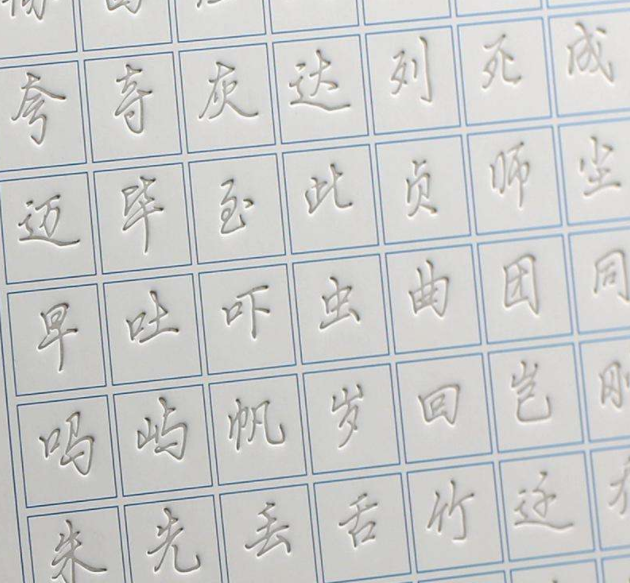 夸夺灰达列死成
迈毕至此贞师尘
早吐吓虫曲团同
吗屿帆岁回岂刚
朱先丢舌竹迁